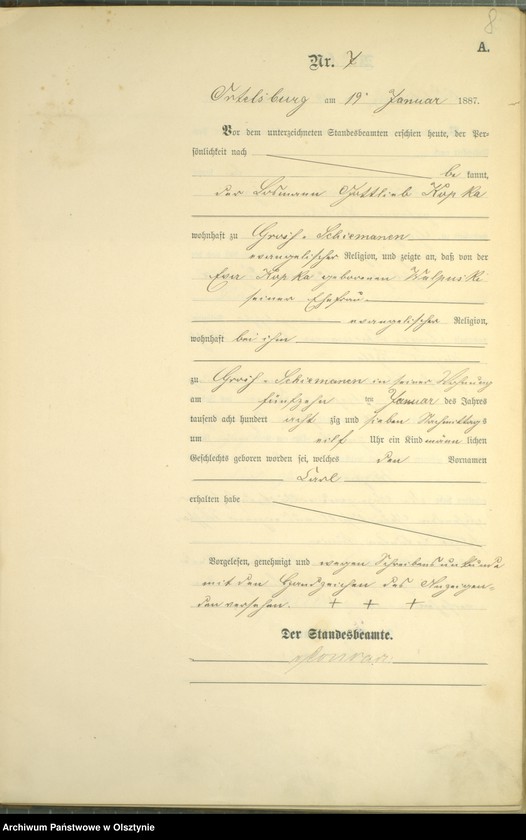 8
A.
Nr. 7
Ortelsburg am 19 Januar 1887.
Vor dem unterzeichneten Standesbeamten erschien heute, der Per-
sönlichkeit nach
be kannt,
der Losmann Gottlieb Kopka
wohnhaft zu Groß-Schiemanen
evangelischer Religion, und zeigte an, daß von der
Eva Kopka geborenen
seiner Ehefrau
evangelischer Religion,
wohnhaft bei ihm
zu Groß-Schiemanen in seiner Wohnung
am fünfzehn ten Januar des Jahres
tausend acht hundert acht zig und sieben Nachmittags
um eilf Uhr ein Kind männ lichen
Geschlechts geboren worden sei, welches den Vornamen
Carl
erhalten habe
Vorgelesen, genehmigt und wegen Schreibensunkunde
mit den Handzeichen des Anzeigen-
den versehen. + + +
Der Standesbeamte.
Archiwum Państwowe w Olsztynie